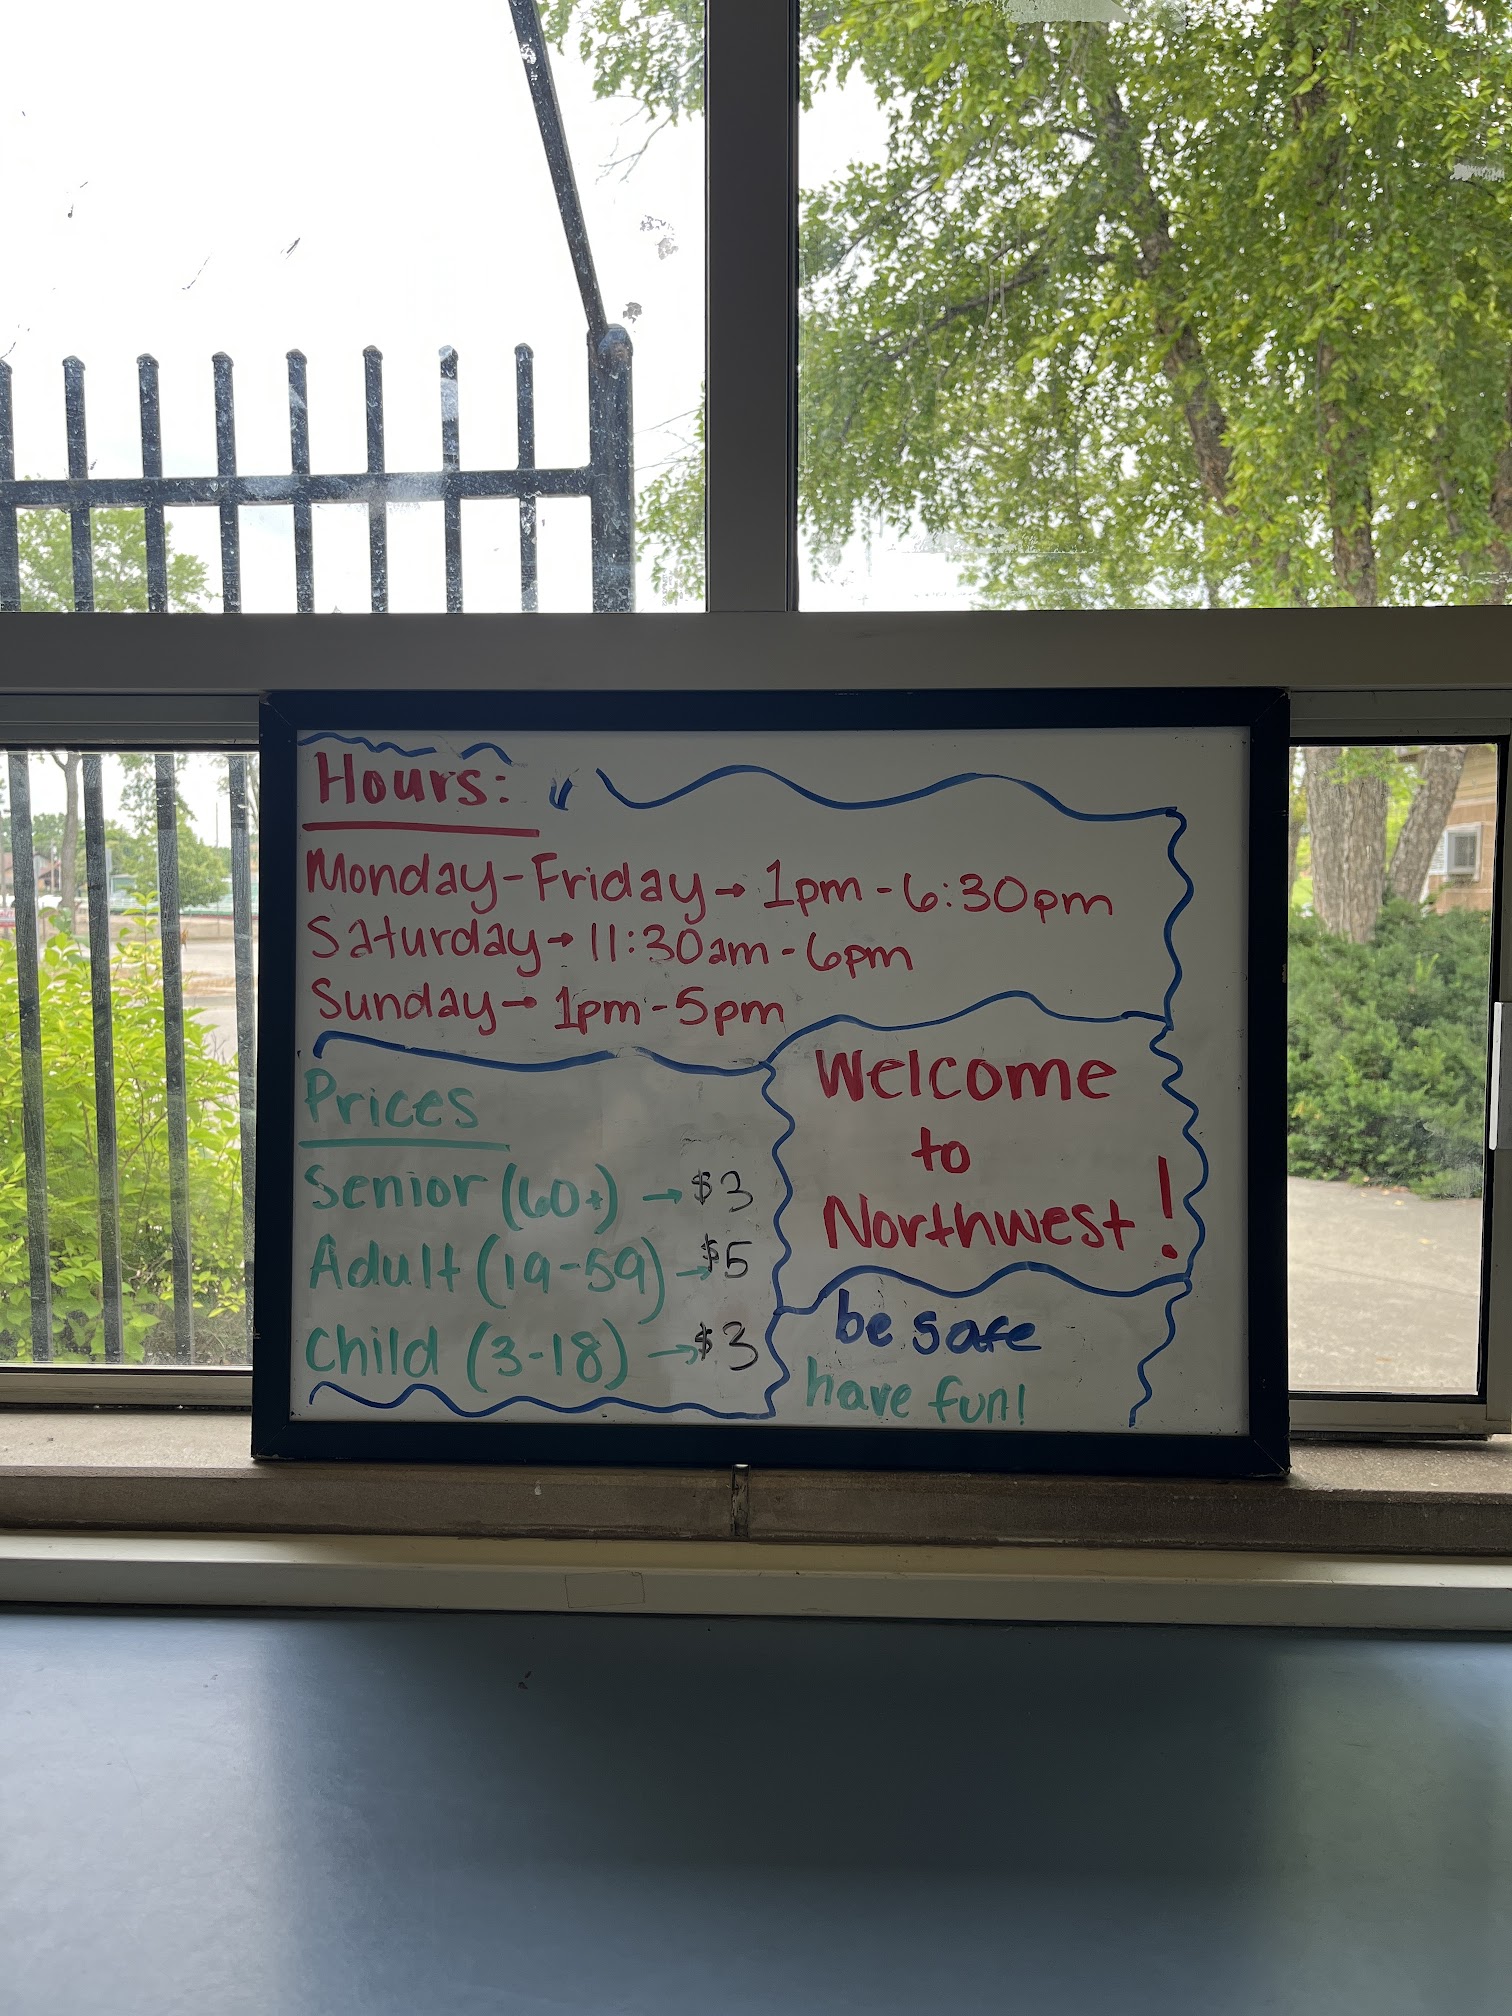 Hours:
Monday-Friday→ 1pm - 6:30pm
Saturday→ 11:30am - 6pm
Sunday→ 1pm - 5pm
Prices
Senior (60+) →$3
Adult (19-59)→$5
Child (3-18) →$3
Welcome
to
Northwest!
be safe
have fun!